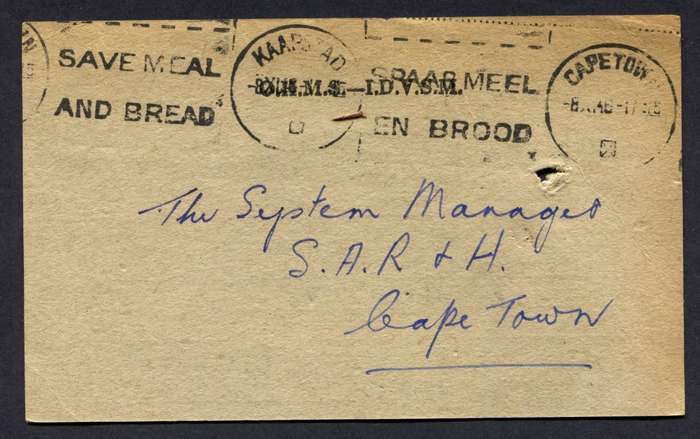 SAVE MEAL
AND BREAD
KAAPSTAD
O.H.M.S.—I.D.V.S.M.
SPAAR MEEL
EN BROOD
CAPETOWN
The System Manager
S.A.R & H.
Cape Town